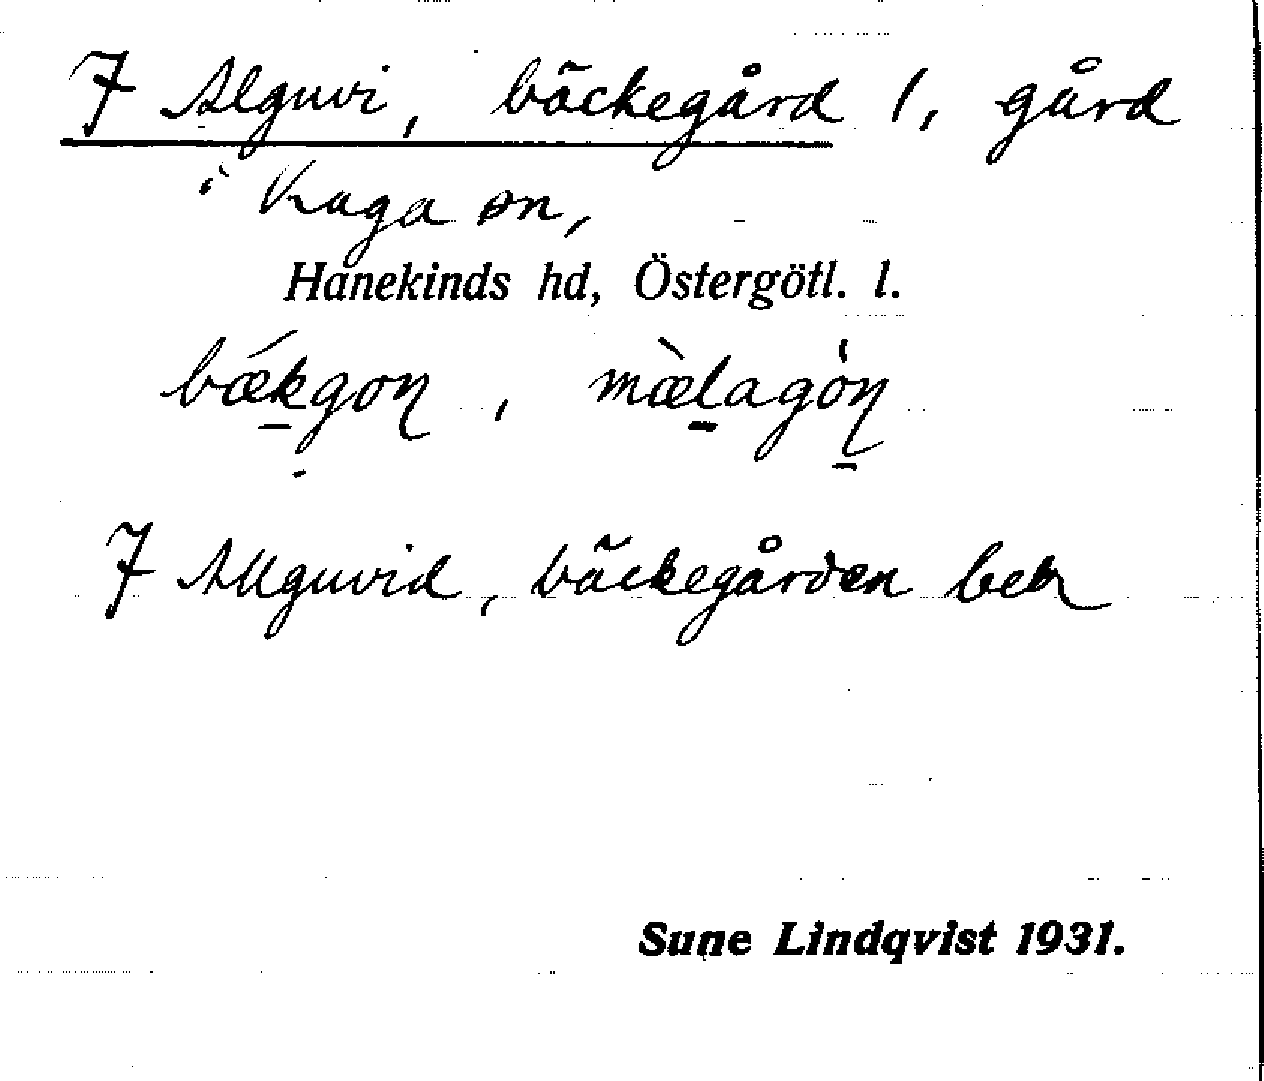 7 Alguvi, bäckegård 1, gård
i Kaga sn,
Hanekinds hd, Östergötl. l.
bǽkgoɳ, mæ̀lagòɳ
7 Allguvid, bäckegården beb
Sune Lindqvist 1931.